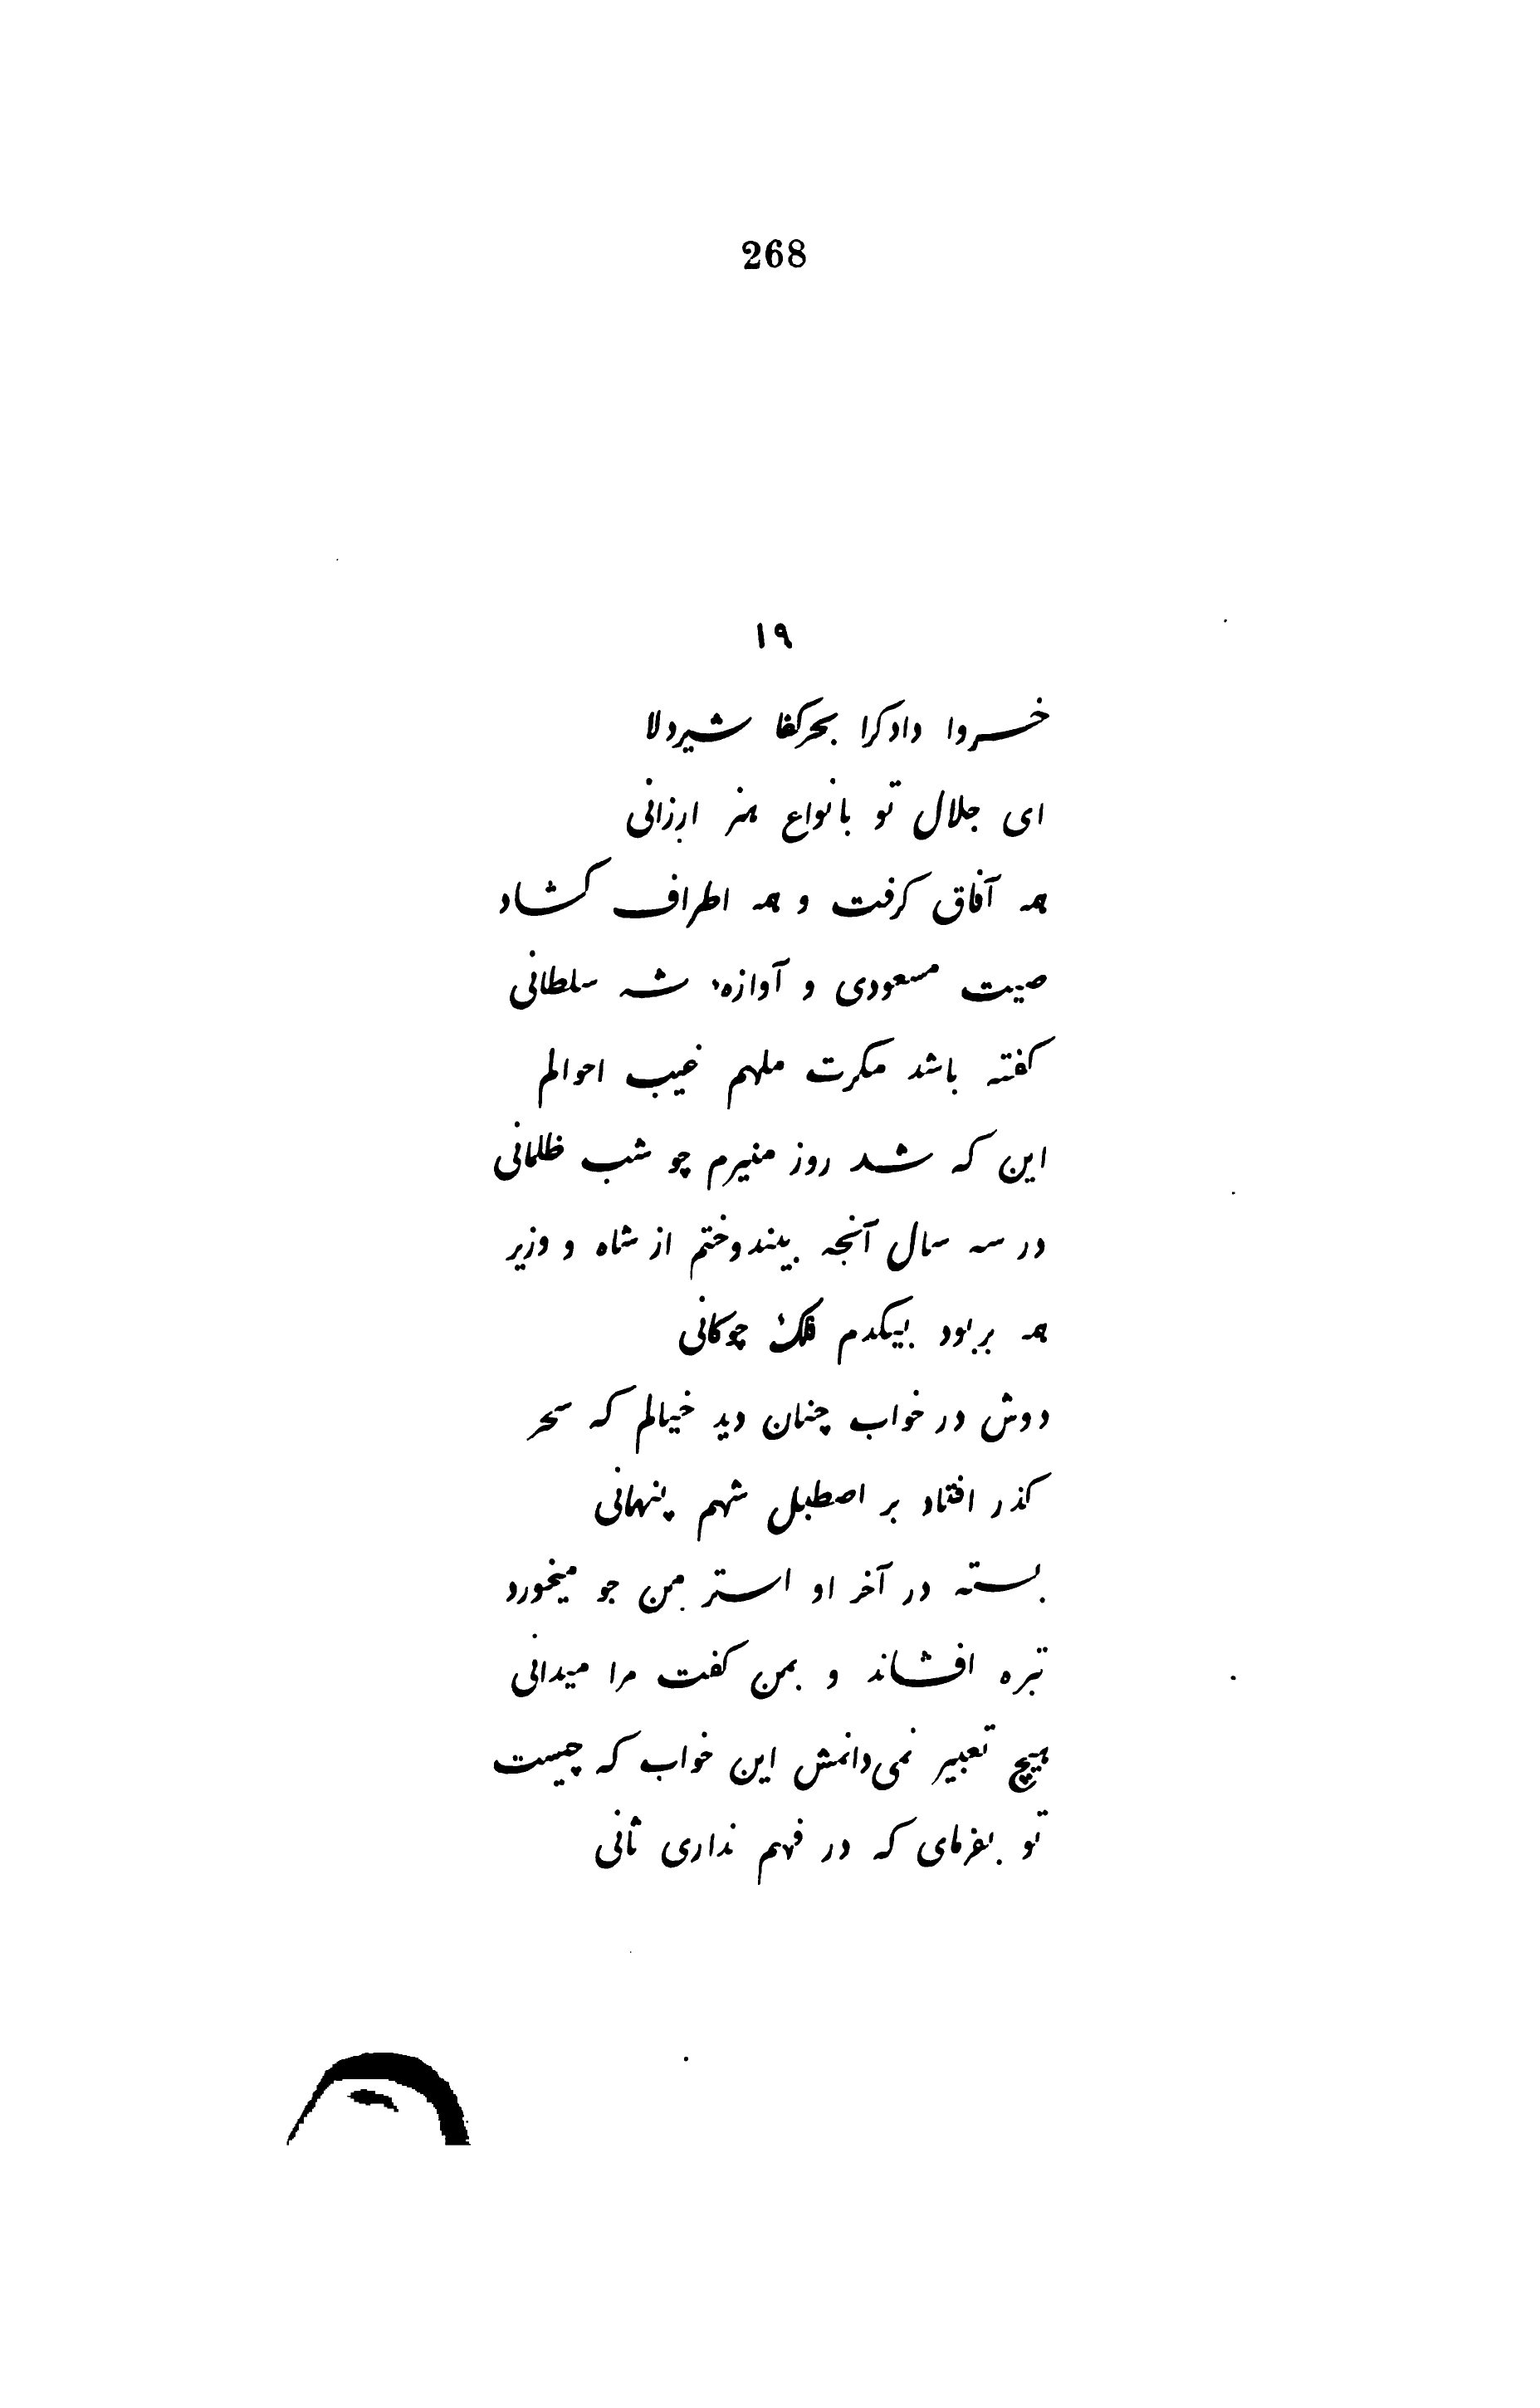 268
١٩
خسروا دادکرا بحرکفا شیردلا
ای جلال تو بانواع هنر ارزانی
همه آفاق کرفت و همه اطراف کشاد
صیت مسعودی و آوازهٔ شه سلطانی
کفته باشد مکرت ملهم غیب احوالم
این که شد روز منیرم چو شب ظلمانی
در سه سال آنچه بیندوختم از شاه و وزیر
همه بربود بیکدم فلک چوکانی
دوش در خواب چنان دید خیالم که سحر
کذر افتاد بر اصطبل شهم پنهانی
بسته در آخر او استر من جو میخورد
تبره افشاند و بمن کفت مرا میدانی
هیچ تعبیر نمی‌دانمش این خواب که چیست
تو بفرمای که در فهم نداری ثانی